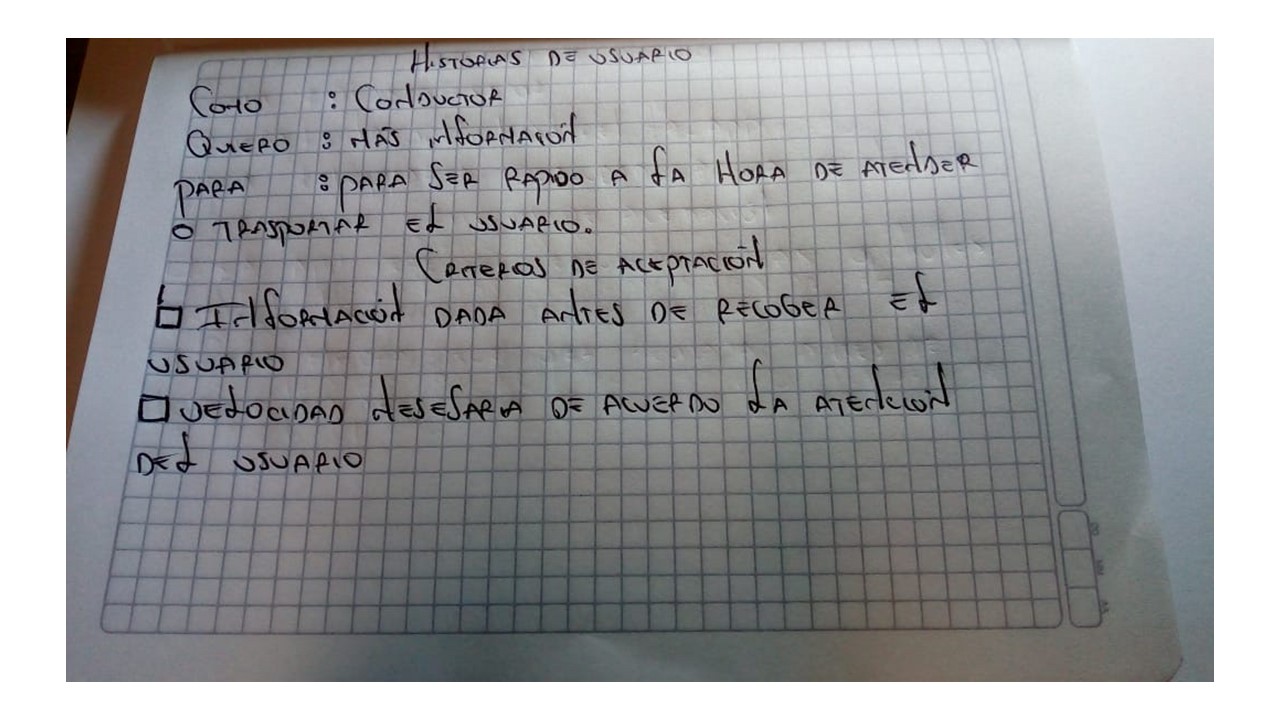 HISTORIAS DE USUARIO
COMO : CONDUCTOR
QUIERO : MÁS INFORMACIÓN
PARA : PARA SER RAPIDO A LA HORA DE ATENDER
O TRASPORTAR EL USUARIO.
CRITERIOS DE ACEPTACIÓN
INFORMACIÓN DADA ANTES DE RECOGER EL
USUARIO
VELOCIDAD NESESARIA DE ACUERDO LA ATENCIÓN
DEL USUARIO